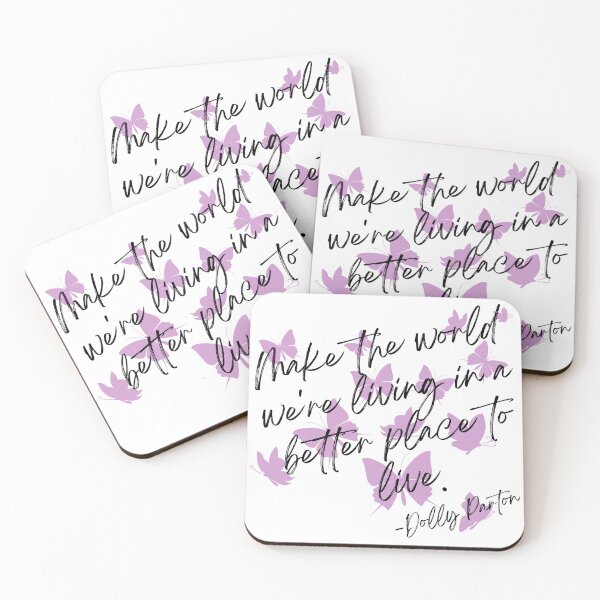 Make the world
we're living in a
place
Make the world
we're living in a
better place to
Darton
Make the world
we're living in a
better place to
live
Make the world
we're living in a
better place to
live.
-Dolly Parton